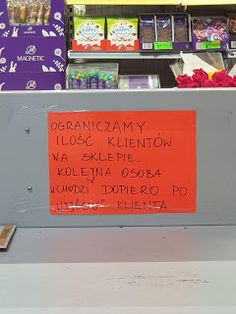 MAGNETIC
MAGNETIC
HAPPY
HAPPY
OGRANICZAMY
ILOŚĆ KLIENTÓW
NA SKLEPIE.
KOLEJNA OSOBA
WCHODZI DOPIERO PO
"WYJŚCIU" KLIENTA